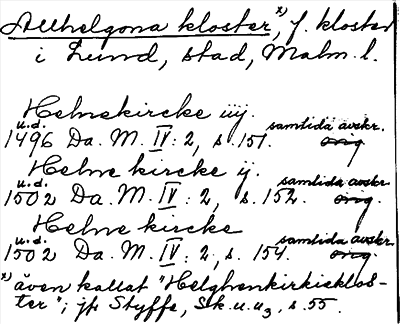 Allhelgona kloster,x) f. kloster
i Lund, stad, Malm. l.
Helnekircke iij.
u.d. samtida avskr.
1496 Da. M. IV: 2, s. 151. orig.
Helne kircke ij.
u.d. samtida avskr.
1502 Da. M. IV: 2, s. 152. orig.
Helne kircke
u.d. samtida avskr.
1502 Da. M. IV: 2, s. 154. orig.
x) även kallat "Helghenkirkieklos-
ter"; jfr Styffe, Sk.u.u3, s. 55.